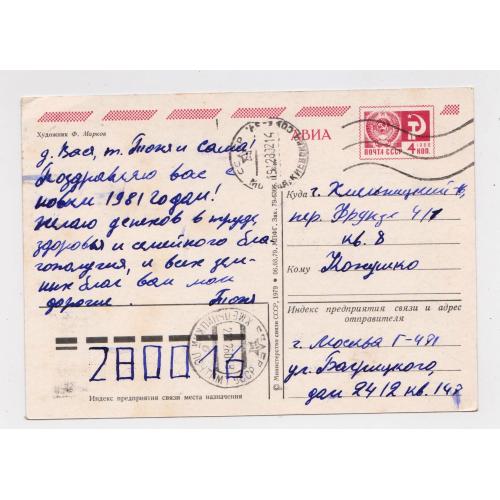 Художник Ф. Марков
АВИА
ПОЧТА СССР
4 КОП.
д. Вася, т. Тоня и Саша!
Поздравляю вас с
новым 1981 годом!
Желаю успехов в труде,
здоровья и семейного бла
гополучия, и всех зем-
ных благ вам мои
дорогие. Тоня
Куда г. Хмельницкий
пер. Фрунзе 4/1
кв. 8
Кому
Индекс предприятия связи и адрес
отправителя
г. Москва Г-491
ул. Багрицкого,
дом 24 12 кв. 148
280016
Индекс предприятия связи места назначения
© Министерство связи СССР, 1979